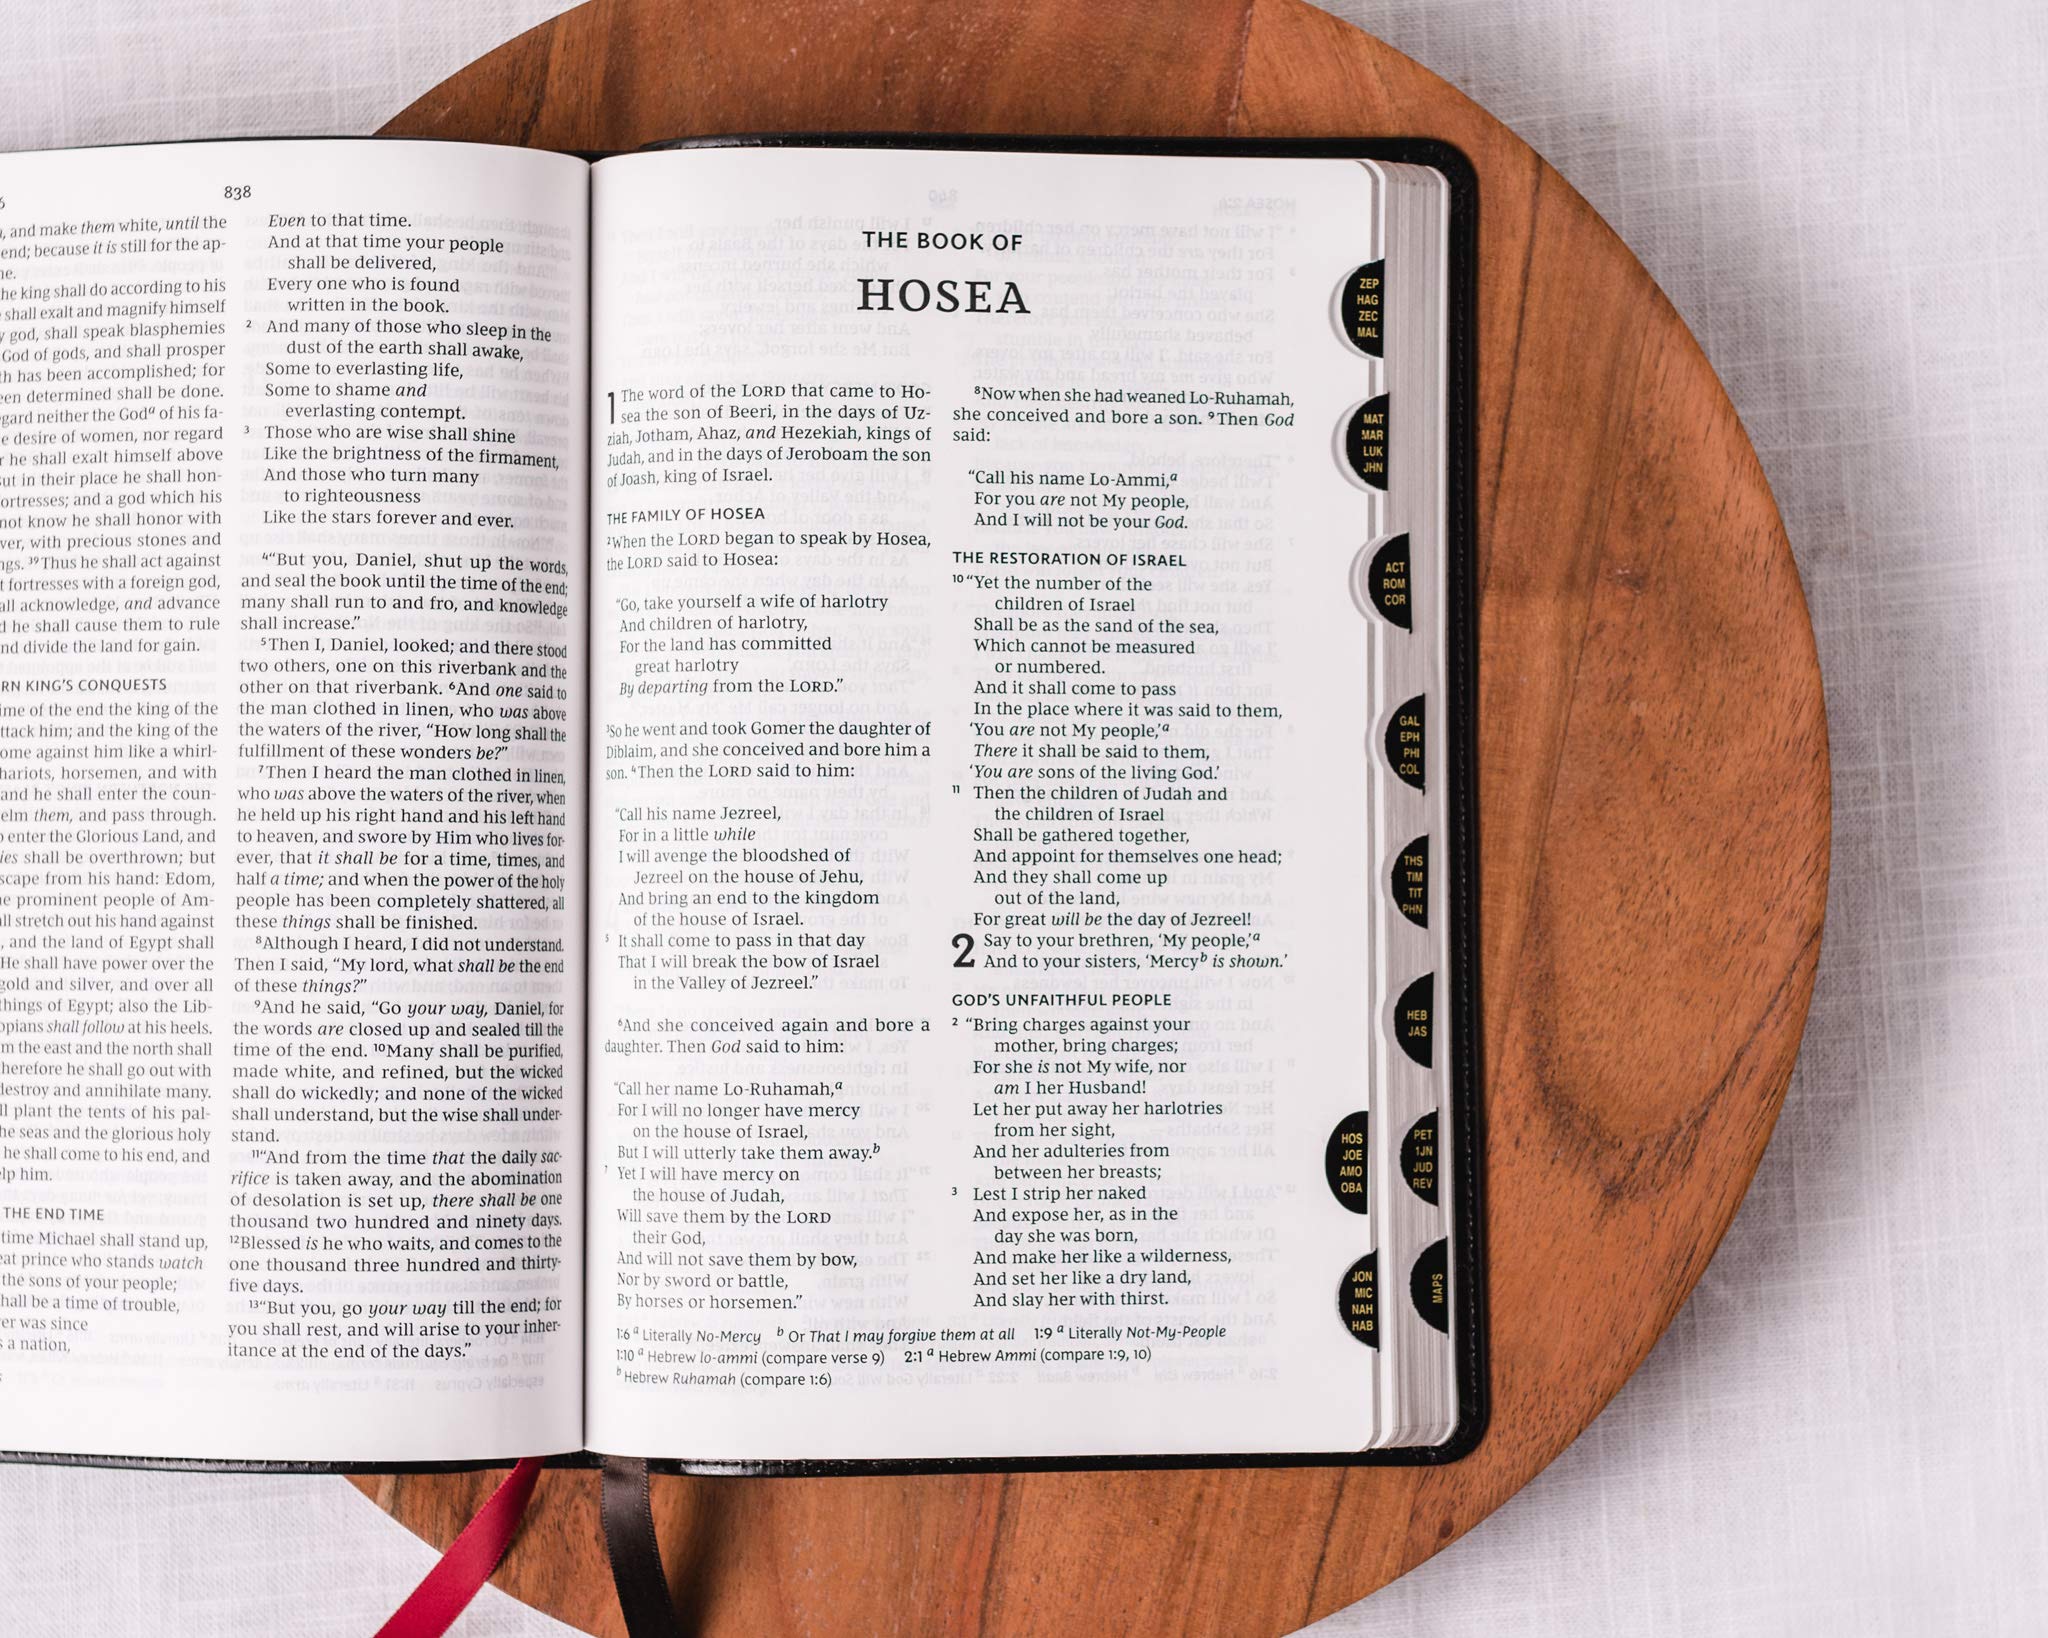 838
, and make them white, until the
end; because it is still for the ap-
he king shall do according to his
shall exalt and magnify himself
god, shall speak blasphemies
God of gods, and shall prosper
th has been accomplished; for
een determined shall be done.
egard neither the Godª of his fa-
e desire of women, nor regard
r he shall exalt himself above
ut in their place he shall hon-
ortresses; and a god which his
not know he shall honor with
ver, with precious stones and
ngs. ³⁹Thus he shall act against
t fortresses with a foreign god,
all acknowledge, and advance
d he shall cause them to rule
nd divide the land for gain.
RN KING'S CONQUESTS
ime of the end the king of the
ttack him; and the king of the
ome against him like a whirl-
hariots, horsemen, and with
and he shall enter the coun-
elm them, and pass through.
o enter the Glorious Land, and
ies shall be overthrown; but
scape from his hand: Edom,
e prominent people of Am-
ll stretch out his hand against
, and the land of Egypt shall
He shall have power over the
gold and silver, and over all
things of Egypt; also the Lib-
opians shall follow at his heels.
m the east and the north shall
herefore he shall go out with
destroy and annihilate many.
ll plant the tents of his pal-
he seas and the glorious holy
he shall come to his end, and
elp him.
THE END TIME
time Michael shall stand up,
eat prince who stands watch
the sons of your people;
hall be a time of trouble,
er was since
s a nation,
Even to that time.
And at that time your people
shall be delivered,
Every one who is found
written in the book.
² And many of those who sleep in the
dust of the earth shall awake,
Some to everlasting life,
Some to shame and
everlasting contempt.
³ Those who are wise shall shine
Like the brightness of the firmament,
And those who turn many
to righteousness
Like the stars forever and ever.
⁴“But you, Daniel, shut up the words,
and seal the book until the time of the end;
many shall run to and fro, and knowledge
shall increase.”
⁵Then I, Daniel, looked; and there stood
two others, one on this riverbank and the
other on that riverbank. ⁶And one said to
the man clothed in linen, who was above
the waters of the river, “How long shall the
fulfillment of these wonders be?”
⁷Then I heard the man clothed in linen,
who was above the waters of the river, when
he held up his right hand and his left hand
to heaven, and swore by Him who lives for-
ever, that it shall be for a time, times, and
half a time; and when the power of the holy
people has been completely shattered, all
these things shall be finished.
⁸Although I heard, I did not understand.
Then I said, “My lord, what shall be the end
of these things?”
⁹And he said, “Go your way, Daniel, for
the words are closed up and sealed till the
time of the end. ¹⁰Many shall be purified,
made white, and refined, but the wicked
shall do wickedly; and none of the wicked
shall understand, but the wise shall under-
stand.
¹¹“And from the time that the daily sac-
rifice is taken away, and the abomination
of desolation is set up, there shall be one
thousand two hundred and ninety days.
¹²Blessed is he who waits, and comes to the
one thousand three hundred and thirty-
five days.
¹³“But you, go your way till the end; for
you shall rest, and will arise to your inher-
itance at the end of the days.”
THE BOOK OF
HOSEA
1 The word of the LORD that came to Ho-
sea the son of Beeri, in the days of Uz-
ziah, Jotham, Ahaz, and Hezekiah, kings of
Judah, and in the days of Jeroboam the son
of Joash, king of Israel.
THE FAMILY OF HOSEA
²When the LORD began to speak by Hosea,
the LORD said to Hosea:
“Go, take yourself a wife of harlotry
And children of harlotry,
For the land has committed
great harlotry
By departing from the LORD.”
³So he went and took Gomer the daughter of
Diblaim, and she conceived and bore him a
son. ⁴Then the LORD said to him:
“Call his name Jezreel,
For in a little while
I will avenge the bloodshed of
Jezreel on the house of Jehu,
And bring an end to the kingdom
of the house of Israel.
⁵ It shall come to pass in that day
That I will break the bow of Israel
in the Valley of Jezreel.”
⁶And she conceived again and bore a
daughter. Then God said to him:
“Call her name Lo-Ruhamah,ª
For I will no longer have mercy
on the house of Israel,
But I will utterly take them away.ᵇ
⁷ Yet I will have mercy on
the house of Judah,
Will save them by the LORD
their God,
And will not save them by bow,
Nor by sword or battle,
By horses or horsemen.”
⁸Now when she had weaned Lo-Ruhamah,
she conceived and bore a son. ⁹Then God
said:
“Call his name Lo-Ammi,ª
For you are not My people,
And I will not be your God.
THE RESTORATION OF ISRAEL
¹⁰ “Yet the number of the
children of Israel
Shall be as the sand of the sea,
Which cannot be measured
or numbered.
And it shall come to pass
In the place where it was said to them,
‘You are not My people,’ª
There it shall be said to them,
‘You are sons of the living God.’
¹¹ Then the children of Judah and
the children of Israel
Shall be gathered together,
And appoint for themselves one head;
And they shall come up
out of the land,
For great will be the day of Jezreel!
2 Say to your brethren, ‘My people,’ª
And to your sisters, ‘Mercyᵇ is shown.’
GOD'S UNFAITHFUL PEOPLE
² “Bring charges against your
mother, bring charges;
For she is not My wife, nor
am I her Husband!
Let her put away her harlotries
from her sight,
And her adulteries from
between her breasts;
³ Lest I strip her naked
And expose her, as in the
day she was born,
And make her like a wilderness,
And set her like a dry land,
And slay her with thirst.
1:6 ª Literally No-Mercy ᵇ Or That I may forgive them at all 1:9 ª Literally Not-My-People
1:10 ª Hebrew lo-ammi (compare verse 9) 2:1 ª Hebrew Ammi (compare 1:9, 10)
ᵇ Hebrew Ruhamah (compare 1:6)
ZEP
HAG
ZEC
MAL
MAT
MAR
LUK
JHN
ACT
ROM
COR
GAL
EPH
PHI
COL
THS
TIM
TIT
PHN
HEB
JAS
HOS
JOE
AMO
OBA
PET
1JN
JUD
REV
JON
MIC
NAH
HAB
MAPS